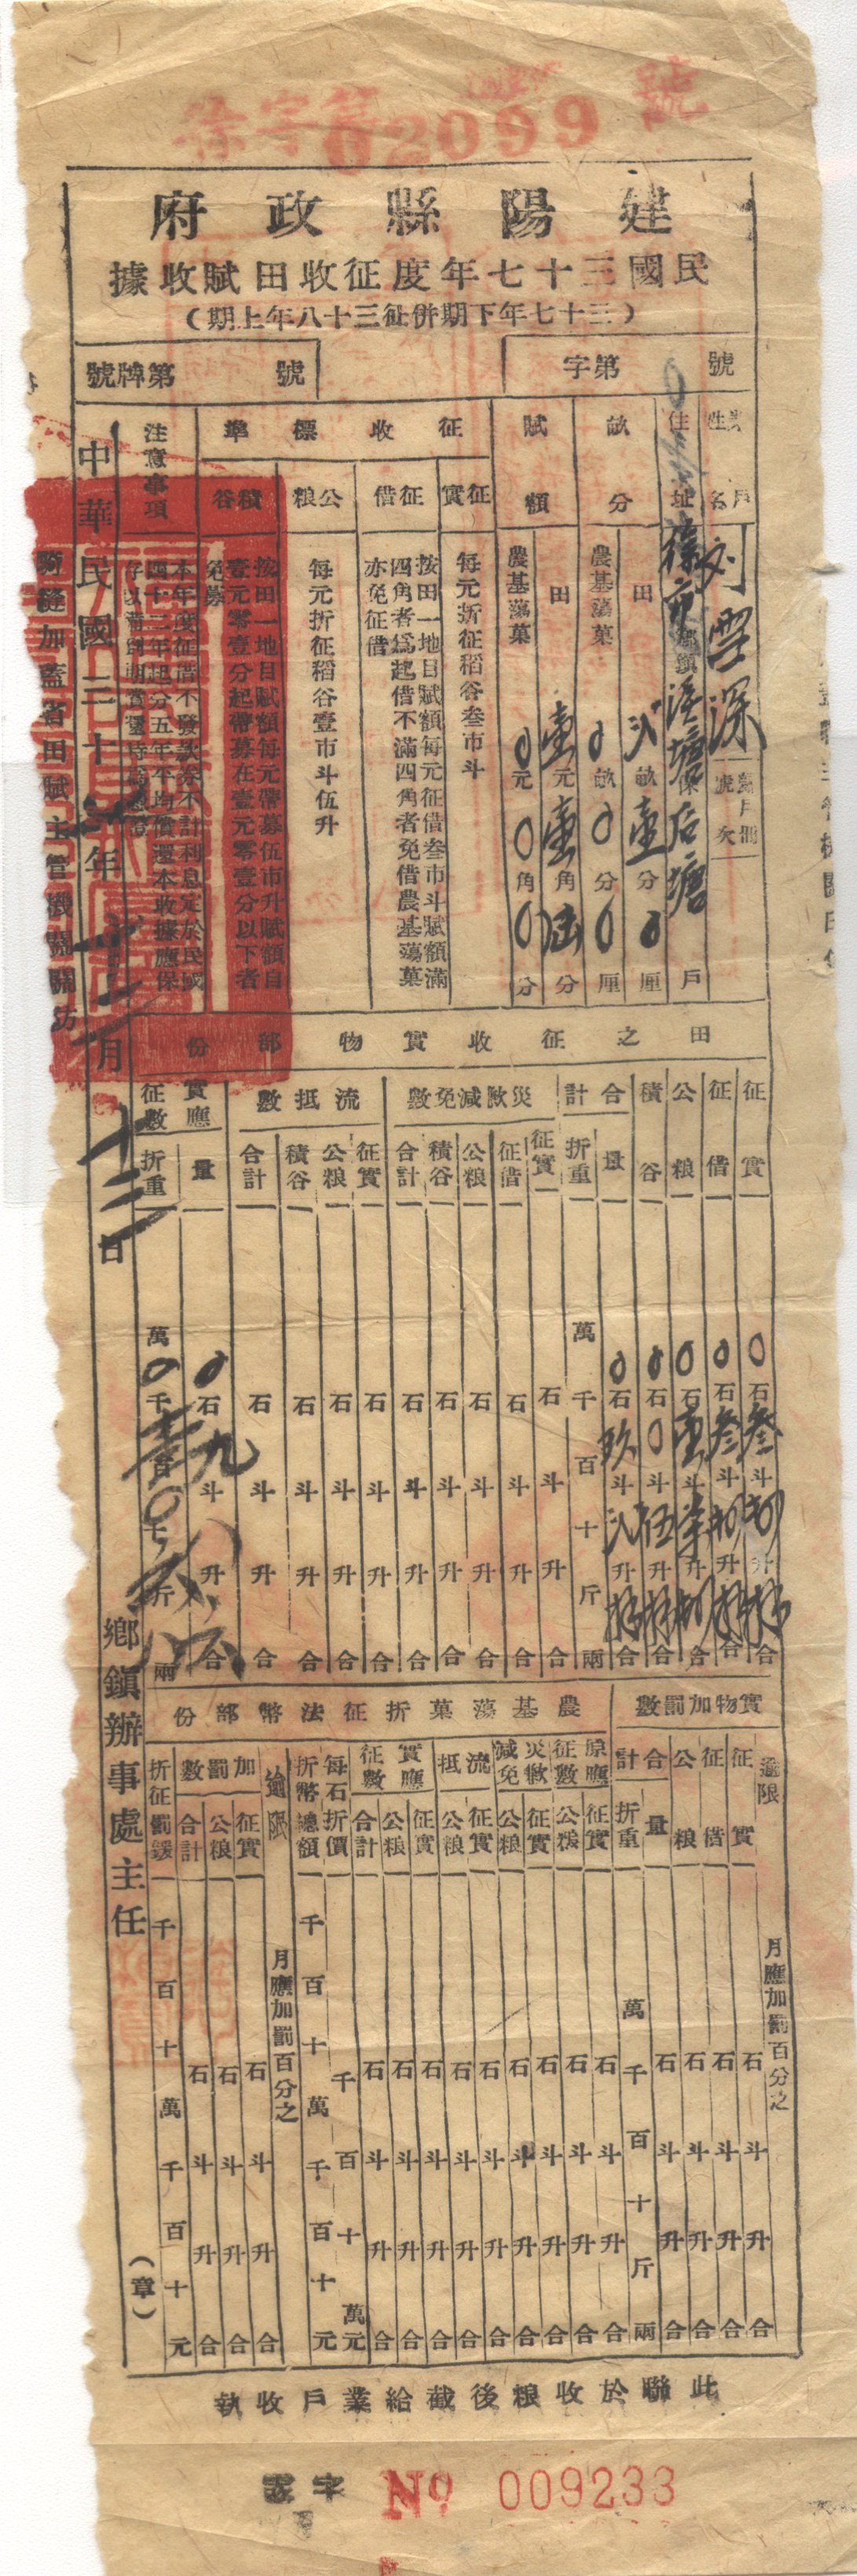 徐字第02099號
建陽縣政府
民國三十七年度征收田賦收據
（三十七年下期併征三十八年上期）
字第　號
號牌第　號
業戶姓名　刘雲深　歸戶冊號次
住址　徐市鄉鎮　保　后塘　戶
畝分
田　畝壹分0厘
農基蕩菓　0畝0分0厘
賦額
田　壹元壹角　分
農基蕩菓　0元0角0分
征收標準
征實　每元折征稻谷叁市斗
征借　按田一地目賦額每元征借叁市斗賦額滿四角者爲起借不滿四角者免借農基蕩菓亦免征借
公粮　每元折征稻谷壹市斗伍升
積谷　按田一地目賦額每元帶募伍市升賦額自壹元零壹分起帶募在壹元零壹分以下者免募
注意事項　本年度征借不發款券不計利息定於民國四十二年起分五年平均償還本收據應保存以備到期償還時
中華民國三十　年　月十三日
騎縫加蓋省田賦主管機關關防
田之征收實物部份
征實　0石叁斗　升　合
征借　0石叁斗　升　合
公粮　0石壹斗　升　合
積谷　0石0斗伍升　合
合計　量　0石玖斗　升　合
折重　萬千百十斤兩
災歉減免數　征實　征借　公粮　積谷　合計　石斗升合
流抵數　征實　公粮　積谷　合計　石斗升合
實應征數　量　0石九斗　升　合
折重　萬0千　百0十　斤　兩
實物加罰數
逾限　月應加罰百分之
征實　石斗升合
征借　石斗升合
公粮　石斗升合
合計　量　石斗升合
折重　萬千百十斤兩
農基蕩菓折征法幣部份
原應征數　征實　公粮　石斗升合
災歉減免　征實　公粮　石斗升合
流抵　征實　公粮　石斗升合
實應征數　征實　公粮　合計　石斗升合
每石折價　千百十萬元
折幣總額　千百十萬千百十元
逾限　月應加罰百分之
加罰數　征實　公粮　合計　石斗升合
折征罰鍰　千百十萬千百十元
鄉鎮辦事處主任　（章）
此聯於收粮後截給業戶收執
字　號　No 009233